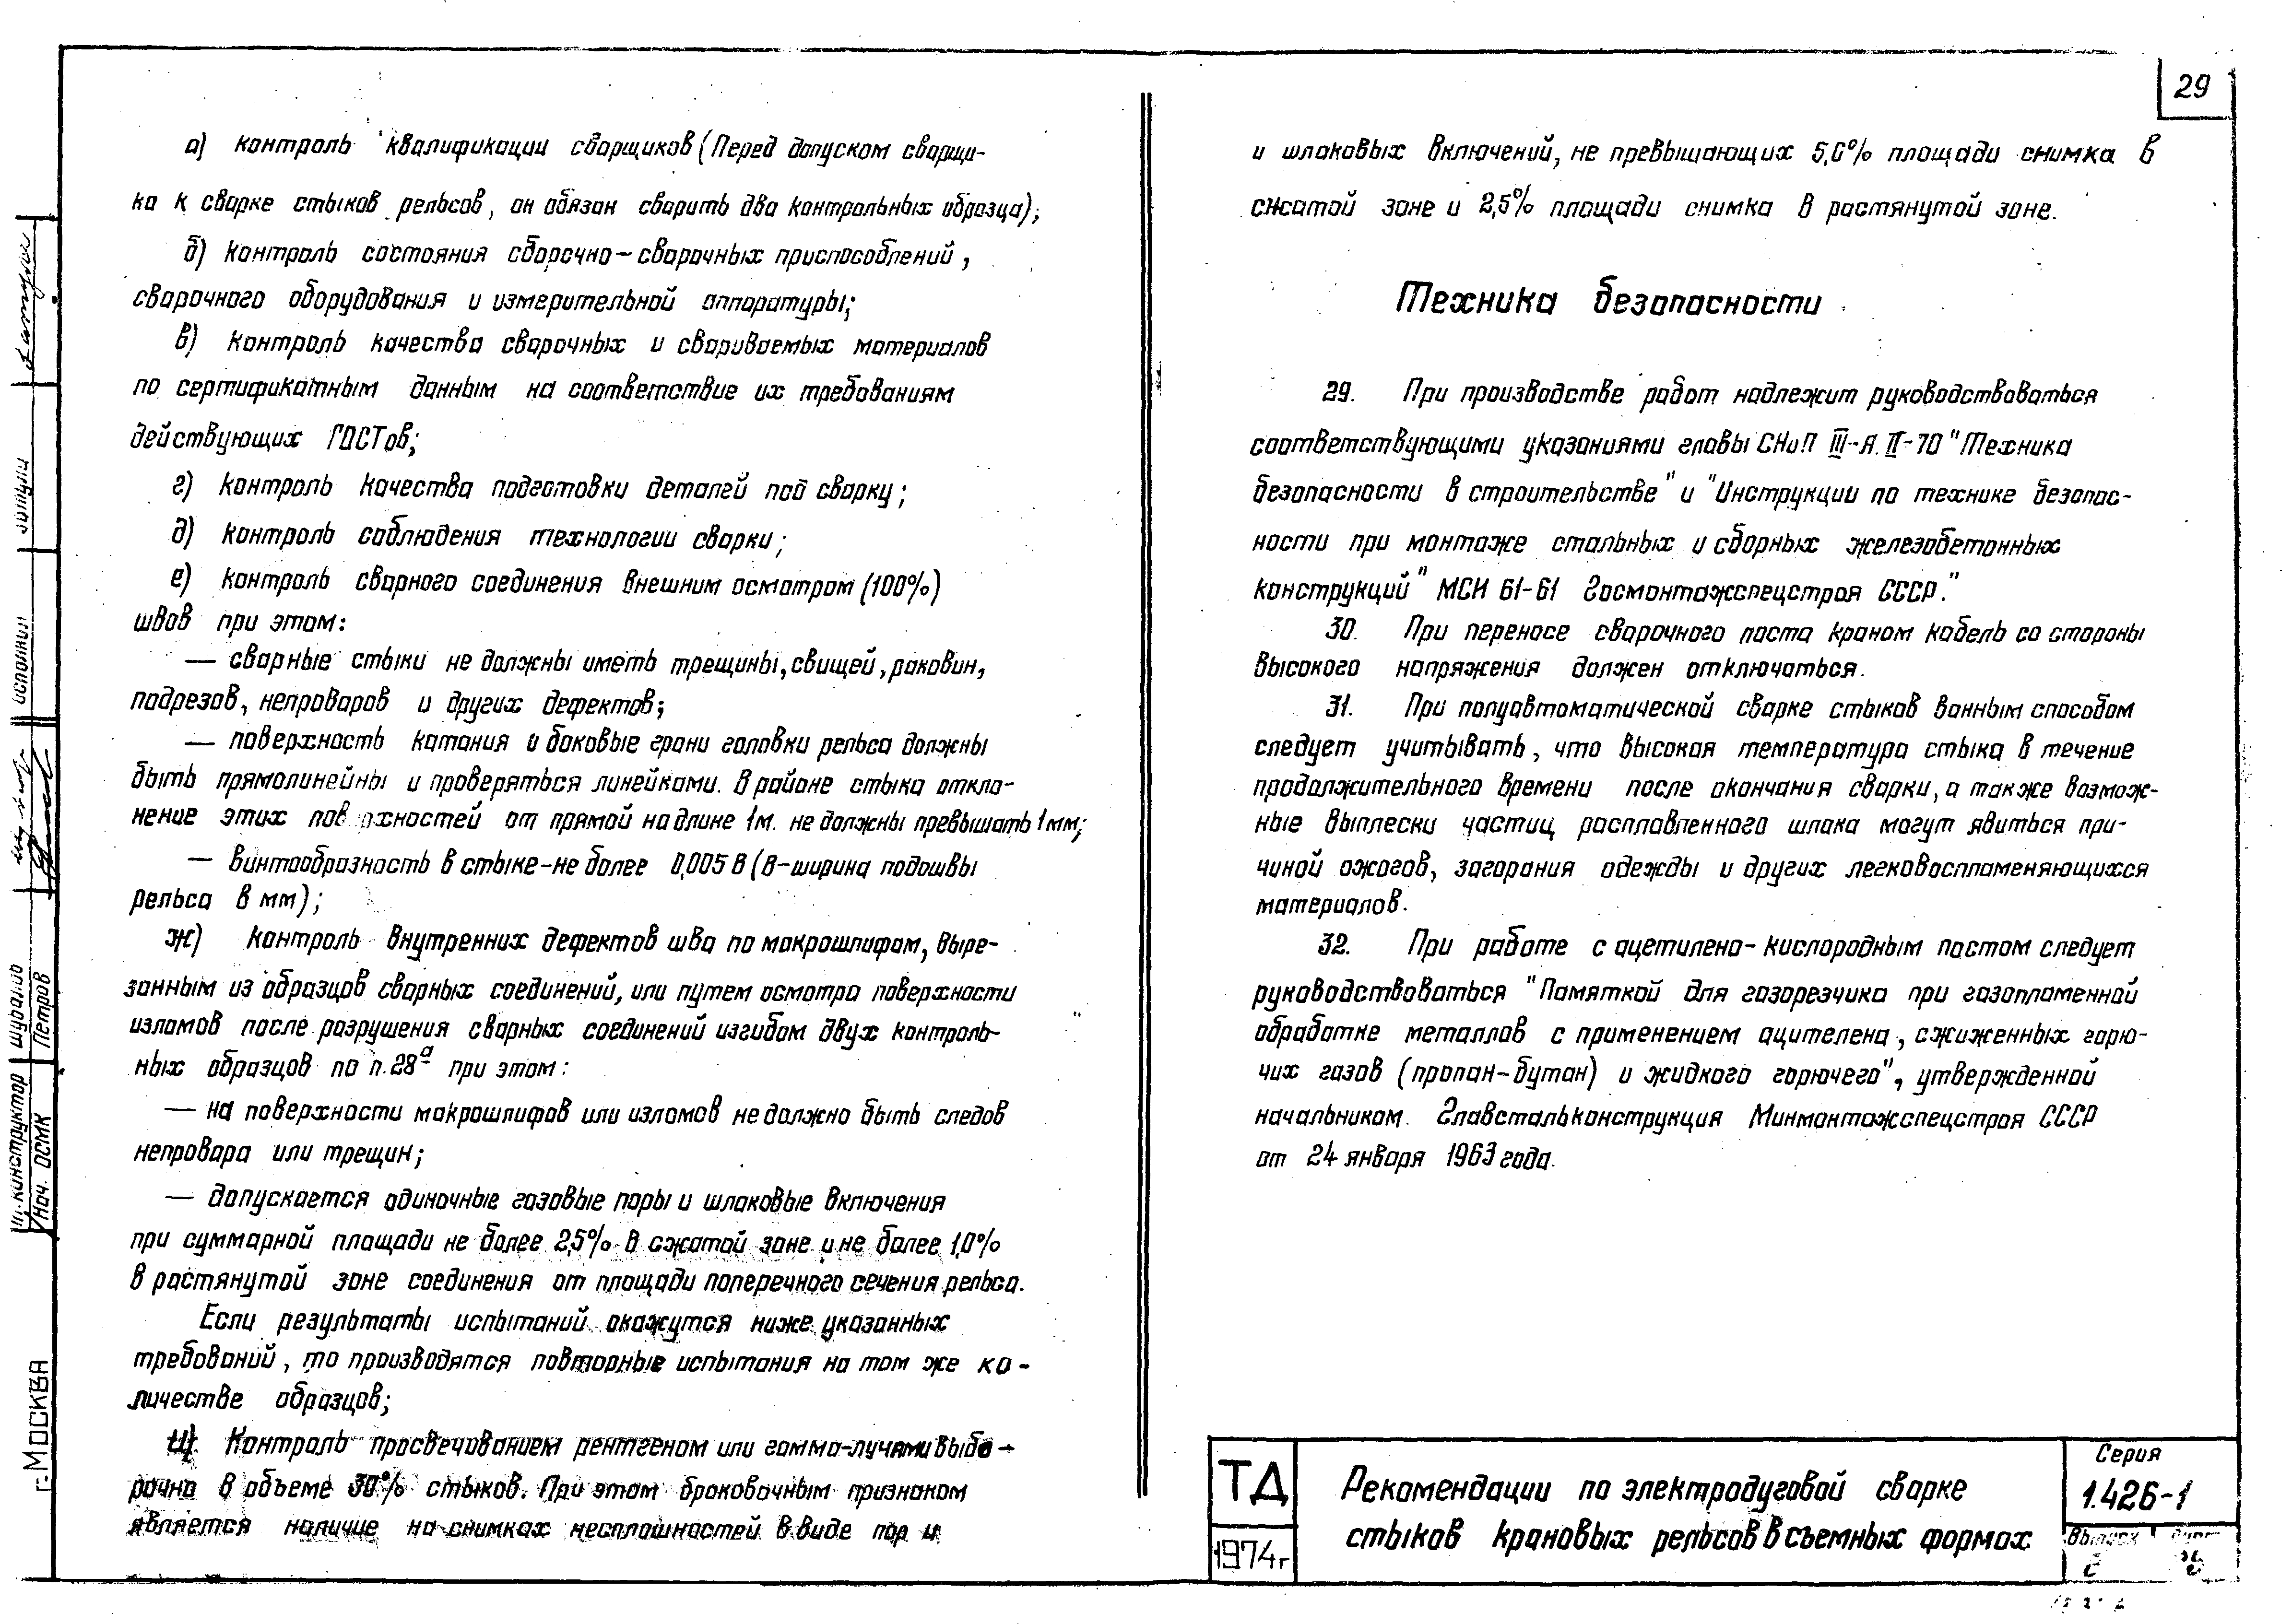 29
а) контроль квалификации сварщиков (Перед допуском сварщи-
ка к сварке стыков рельсов, он обязан сварить два контрольных образца);
б) контроль состояния сборочно-сварочных приспособлений,
сварочного оборудования и измерительной аппаратуры;
в) контроль качества сварочных и свариваемых материалов
по сертификатным данным на соответствие их требованиям
действующих ГОСТов;
г) контроль качества подготовки деталей под сварку;
д) контроль соблюдения технологии сварки;
е) контроль сварного соединения внешним осмотром (100%)
швов при этом:
— сварные стыки не должны иметь трещины, свищей, раковин,
подрезов, непроваров и других дефектов;
— поверхность катания и боковые грани головки рельса должны
быть прямолинейны и проверяться линейками. В районе стыка откло-
нение этих пов рхностей от прямой на длине 1м. не должны превышать 1мм;
— винтообразность в стыке-не более 0,005 В (В-ширина подошвы
рельса в мм);
ж) контроль внутренних дефектов шва по макрошлифам, выре-
занным из образцов сварных соединений, или путем осмотра поверхности
изломов после разрушения сварных соединений изгибом двух контроль-
ных образцов по п.28а при этом:
— на поверхности макрошлифов или изломов не должно быть следов
непровара или трещин;
— допускается одиночные газовые поры и шлаковые включения
при суммарной площади не более 2,5% в сжатой зоне и не более 1,0%
в растянутой зоне соединения от площади поперечного сечения рельса.
Если результаты испытаний окажутся ниже указанных
требований, то производятся повторные испытания на том же ко-
личестве образцов;
и) Контроль просвечиванием рентгеном или гамма-лучами выбо-
рочно в объеме 30% стыков. При этом браковочным признаком
является наличие на снимках несплошностей в виде пор и
и шлаковых включений, не превышающих 5,0% площади снимка в
сжатой зоне и 2,5% площади снимка в растянутой зоне.
Техника безопасности
29. При производстве работ надлежит руководствоваться
соответствующими указаниями главы СНиП III-А.II-70 "Техника
безопасности в строительстве" и "Инструкции по технике безопас-
ности при монтаже стальных и сборных железобетонных
конструкций" МСН 61-61 Госмонтажспецстроя СССР."
30. При переносе сварочного поста краном кабель со стороны
высокого напряжения должен отключаться.
31. При полуавтоматической сварке стыков ванным способом
следует учитывать, что высокая температура стыка в течение
продолжительного времени после окончания сварки, а также возмож-
ные выплески частиц расплавленного шлака могут явиться при-
чиной ожогов, загорания одежды и других легковоспламеняющихся
материалов.
32. При работе с ацетилено-кислородным постом следует
руководствоваться "Памяткой для газорезчика при газопламенной
обработке металлов с применением ацителена, сжиженных горю-
чих газов (пропан-бутан) и жидкого горючего", утвержденной
начальником Главстальконструкция Минмонтажспецстроя СССР
от 24 января 1963 года.
ТД
1974г
Рекомендации по электродуговой сварке
стыков крановых рельсов в съемных формах
Серия
1.426-1
Выпуск
г. Москва
Гл. конструктор
Нач. ОСМК
Петров
исполнил